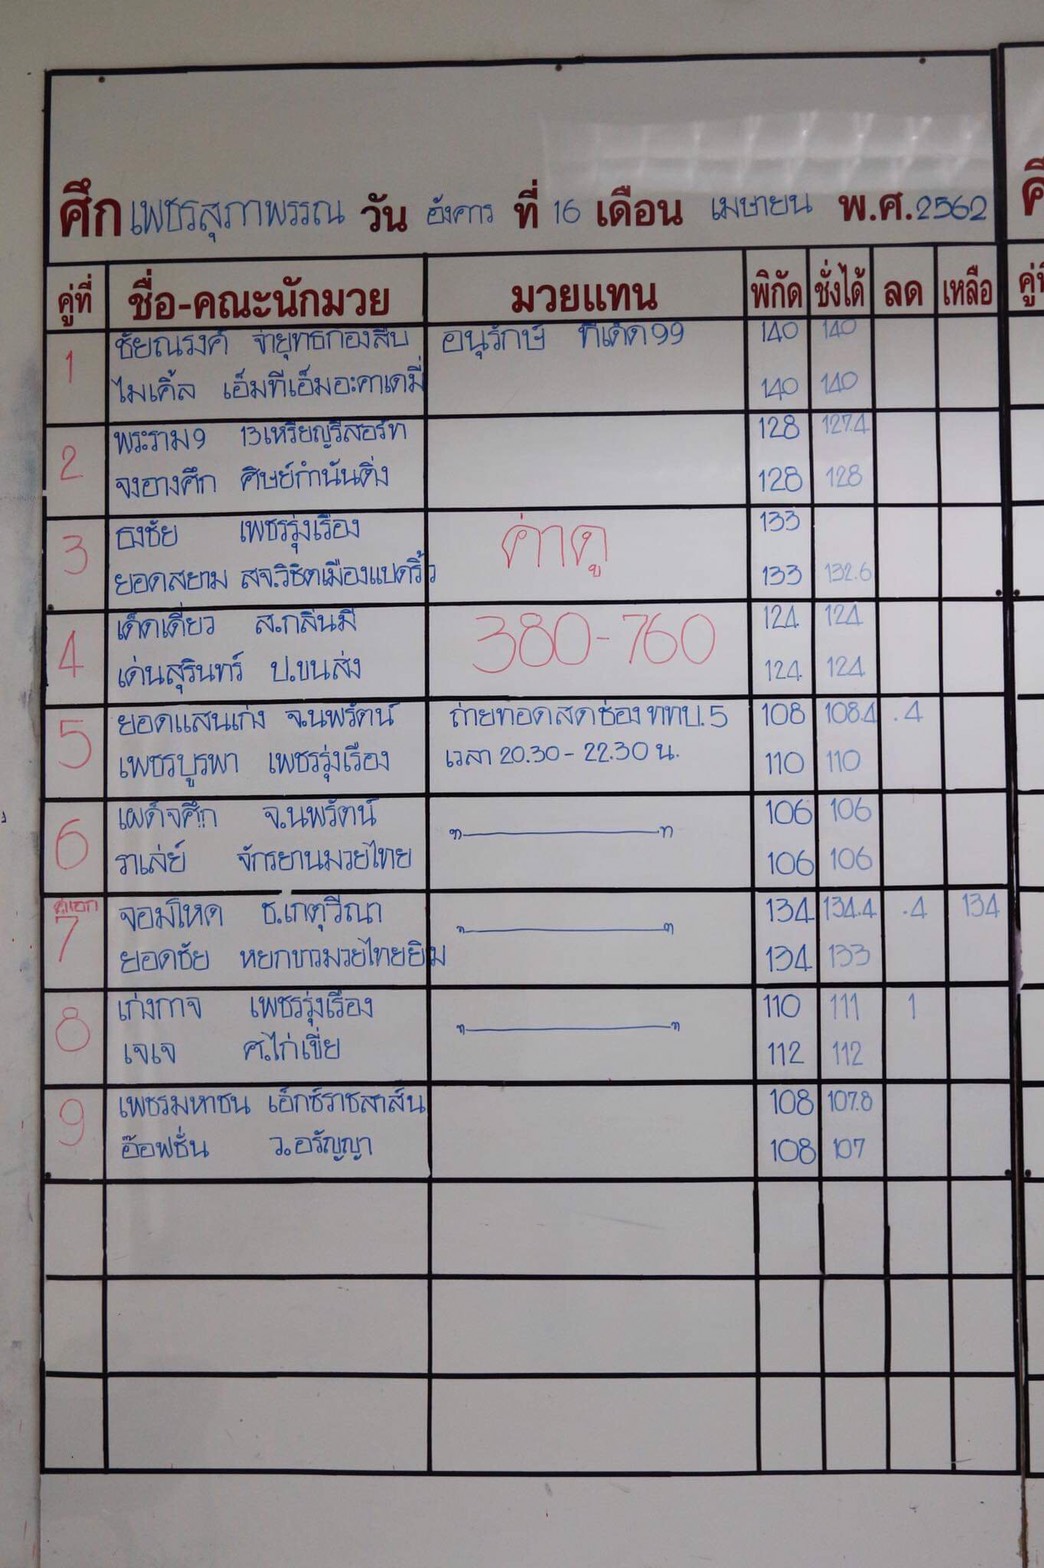 ศึก เพชรสุภาพรรณ วัน อังคาร ที่ 16 เดือน เมษายน พ.ศ. 2562
คู่ที่ ชื่อ-คณะนักมวย มวยแทน พิกัด ชั่งได้ ลด เหลือ
1 ชัยณรงค์ จ่ายุทธกองสืบ อนุรักษ์ ทีเด็ด99 140 140
ไมเคิ้ล เอ็มทีเอ็มอะคาเดมี่ 140 140
2 พระราม9 13เหรียญรีสอร์ท 128 127.4
จงอางศึก ศิษย์กำนันติ่ง 128 128
3 ธงชัย เพชรรุ่งเรือง ค่าดู 133
ยอดสยาม สจ.วิชิตเมืองแปดริ้ว 133 132.6
4 เด็ดเดี่ยว ส.กลิ่นมี 380-760 124 124
เด่นสุรินทร์ ป.ขนส่ง 124 124
5 ยอดแสนเก่ง จ.นพรัตน์ ถ่ายทอดสดช่อง ททบ.5 108 108.4 .4
เพชรบูรพา เพชรรุ่งเรือง เวลา 20.30 - 22.30 น. 110 110
6 เผด็จศึก จ.นพรัตน์ 106 106
ราเล่ย์ จักรยานมวยไทย 106 106
คู่เอก
7 จอมโหด ธ.เกตุวีณา 134 134.4 .4 134
ยอดชัย หยกขาวมวยไทยยิม 134 133
8 เก่งกาจ เพชรรุ่งเรือง 110 111 1
เจเจ ศ.ไก่เขีย 112 112
9 เพชรมหาชน เอ็กซ์ราชสาส์น 108 107.8
อ๊อฟชั่น ว.อรัญญา 108 107